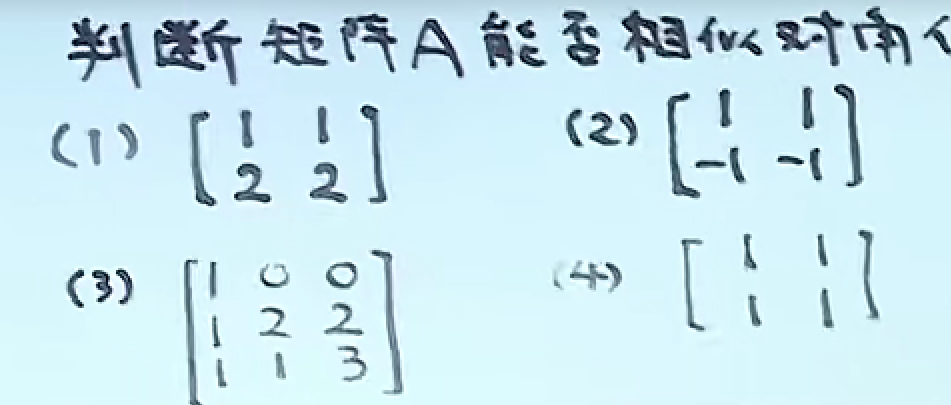 判断矩阵A能否相似对角化
(1) [1 1
2 2]
(2) [1 1
-1 -1]
(3) [1 0 0
1 2 2
1 1 3]
(4) [1 1
1 1]